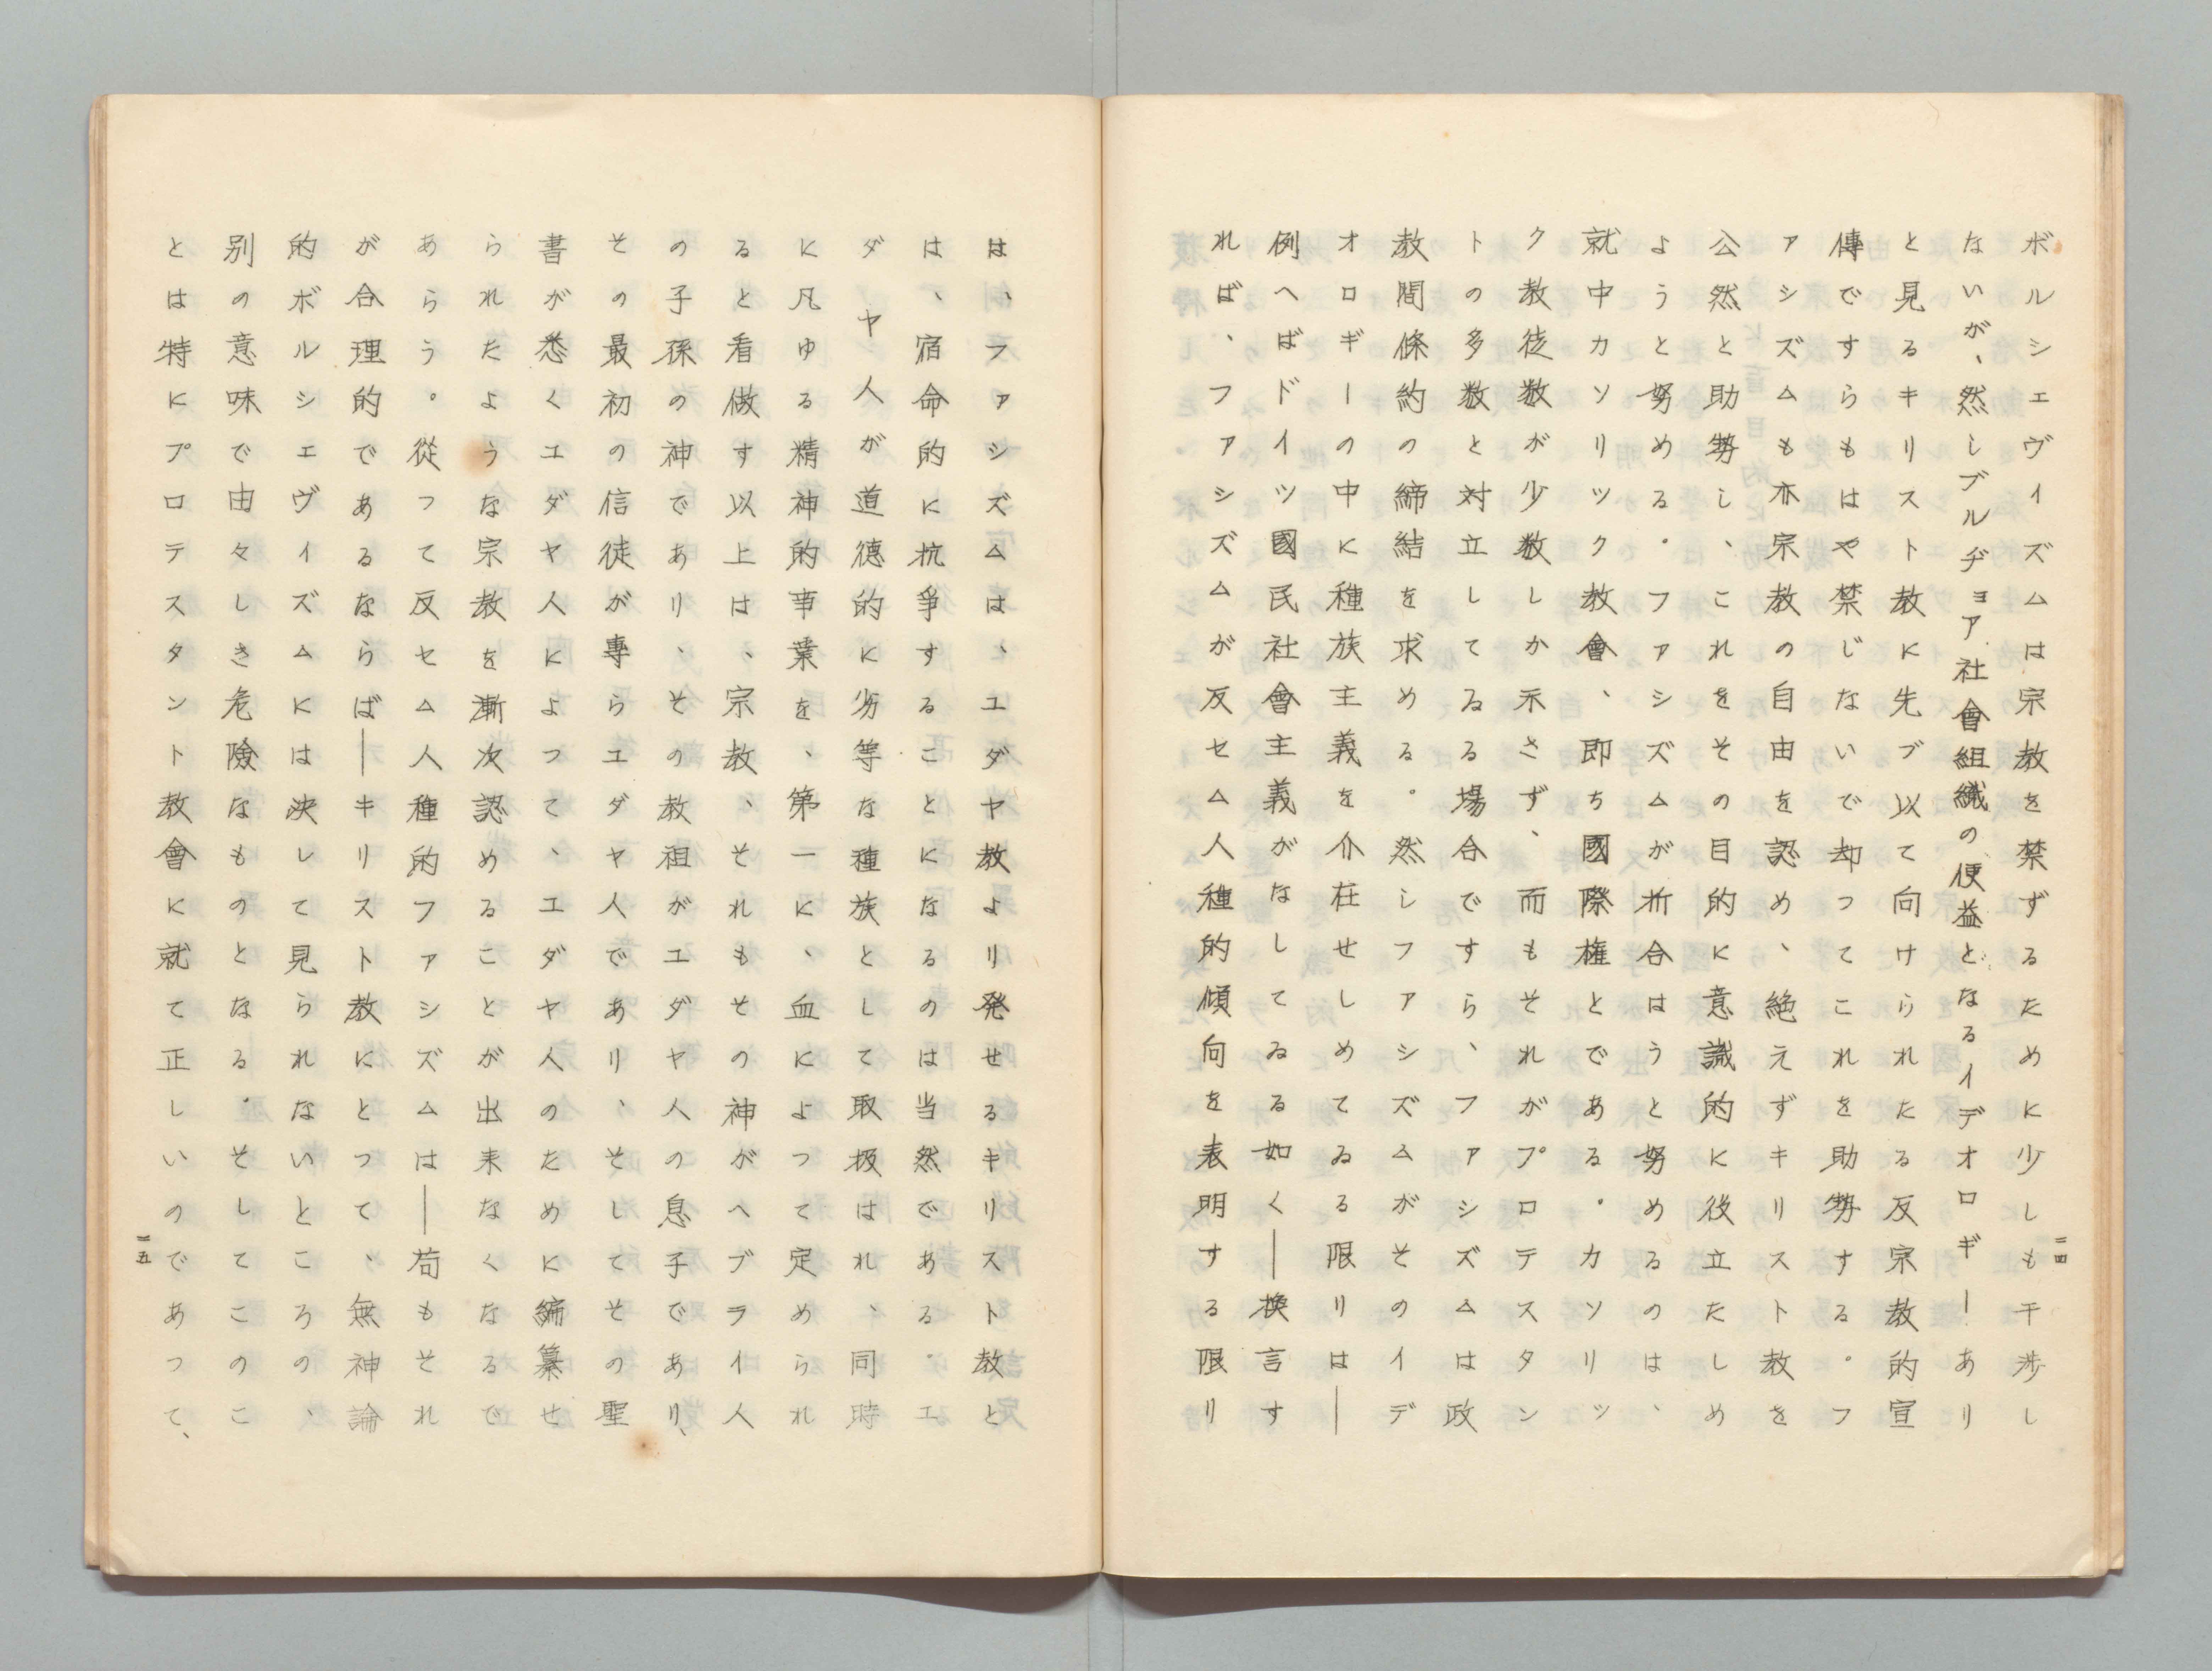 ボルシェヴィズムは宗教を禁ずるために少しも干渉し
ないが、然しブルヂョア社會組織の便益となるイデオロギーあり
と見るキリスト教に先ブ以て向けられたる反宗教的宣
傳ですらもはや禁じないで却つてこれを助勢する。フ
ァシズムも亦宗教の自由を認め、絶えずキリスト教を
公然と助勢し、これをその目的に意識的に後立たしめ
ようと努める。ファシズムが折合はうと努めるのは、
就中カソリック教會、即ち國際権とである。カソリッ
ク教徒数が少数しか示さず、而もそれがプロテスタン
トの多数と対立してゐる場合ですら、ファシズムは政
教間條約の締結を求める。然しファシズムがそのイデ
オロギーの中に種族主義を介在せしめてゐる限りは―
例へばドイツ國民社會主義がなしてゐる如く―換言す
れば、ファシズムが反セム人種的傾向を表明する限り
二四
は、ファシズムは、ユダヤ教より発せるキリスト教と
は、宿命的に抗爭することになるのは当然である。ユ
ダヤ人が道德的に劣等な種族として取扱はれ、同時
に凡ゆる精神的事業を、第一に、血によつて定められ
ると看做す以上は、宗教、それもその神がヘブライ人
の子孫の神であり、その教祖がユダヤ人の息子であり、
その最初の信徒が專らユダヤ人であり、そしてその聖
書が悉くユダヤ人によつて、ユダヤ人のために編纂せ
られたような宗教を漸次認めることが出来なくなるで
あらう。從つて反セム人種的ファシズムは―苟もそれ
が合理的であるならば―キリスト教にとつて、無神論
的ボルシェヴィズムには決して見られないところの、
別の意味で由々しき危險なものとなる。そしてこのこ
とは特にプロテスタント教會に就て正しいのであつて、
二五